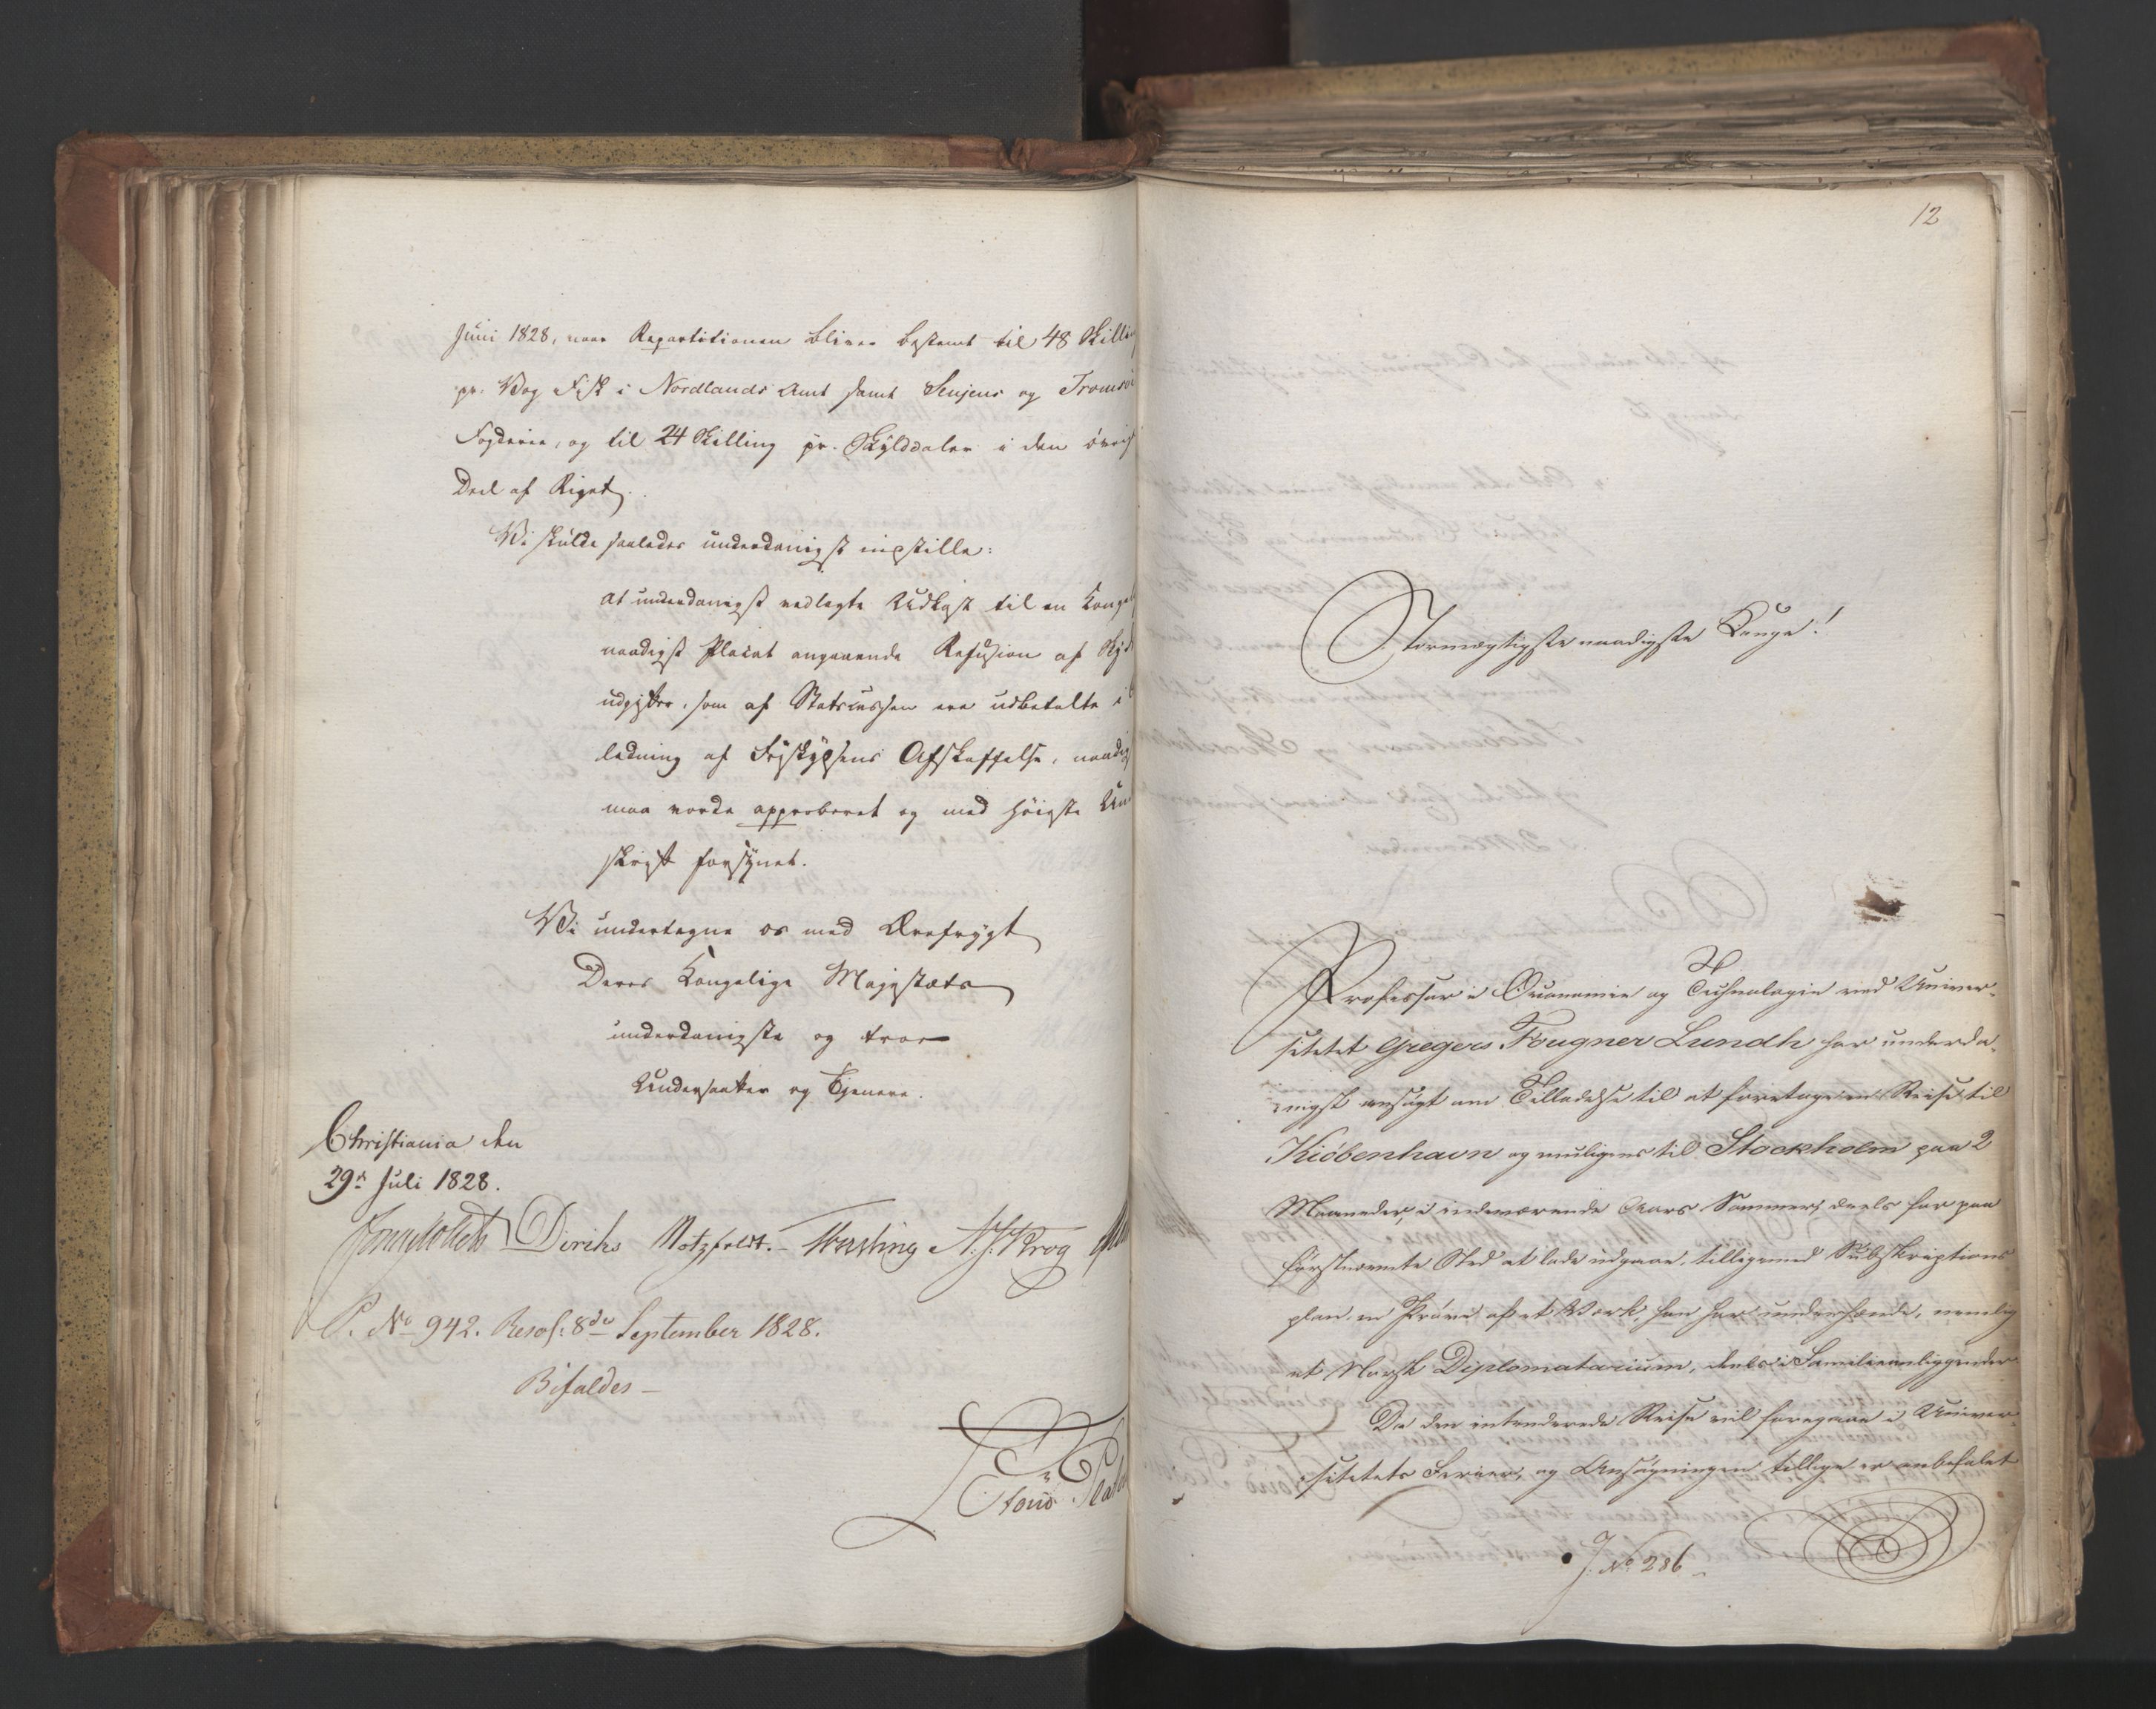 Juni 1828, naar Repartitionen bliver bestemt til 48 Skilli
pr. Vog Fisk i Nordlands Amt samt Senjens og Tromsö
Fogderie, og til 24 Skilling pr. Skylddaler i den övrige
Deel af Riget.
Vi skulde saaledes underdanigst instille:
at underdanigst vedlagte Udkast til en Kongel
naadigst Placat angaaende Refusion af Skyds
udgifter, som af Statscassen ere udbetalte i
ledning af Friskydsens Afskaffelse, naadig
maa vorde approberet og med höieste Un
skrift forsynet.
Vi undertegne os med Ærefrygt
Deres Kongelige Majestæts
underdanigste og troe
Undersaatter og Tjenere.
Christiania den
29de Juli 1828.
Jonas Collett Diriks Motzfeldt. Fasting N. J. Krog
P. No 942. Resol: 8de September 1828.
Bifaldes –
12
Stormægtigste naadigste Konge!
Professor i Oeconomie og Technologie ved Univer-
sitetet Gregers Fougner Lundh har underda-
nigst ansøgt om Tilladelse til at foretage en Reise til
Kiöbenhavn og muligens til Stockholm paa 2
Maaneder, i indeværende Aars Sommer, deels for paa
förstnævnte Sted at lade udgaae, tilligemed Subskriptions
plan, en Pröve af et Værk, han har under hænde, nemlig
et Norsk Diplomatarium, deels i Familieanliggender.
Da den intenderede Reise vil foregaae i Univer-
sitetets Ferier, og Ansøgningen tillige er anbefalet
J. No 286